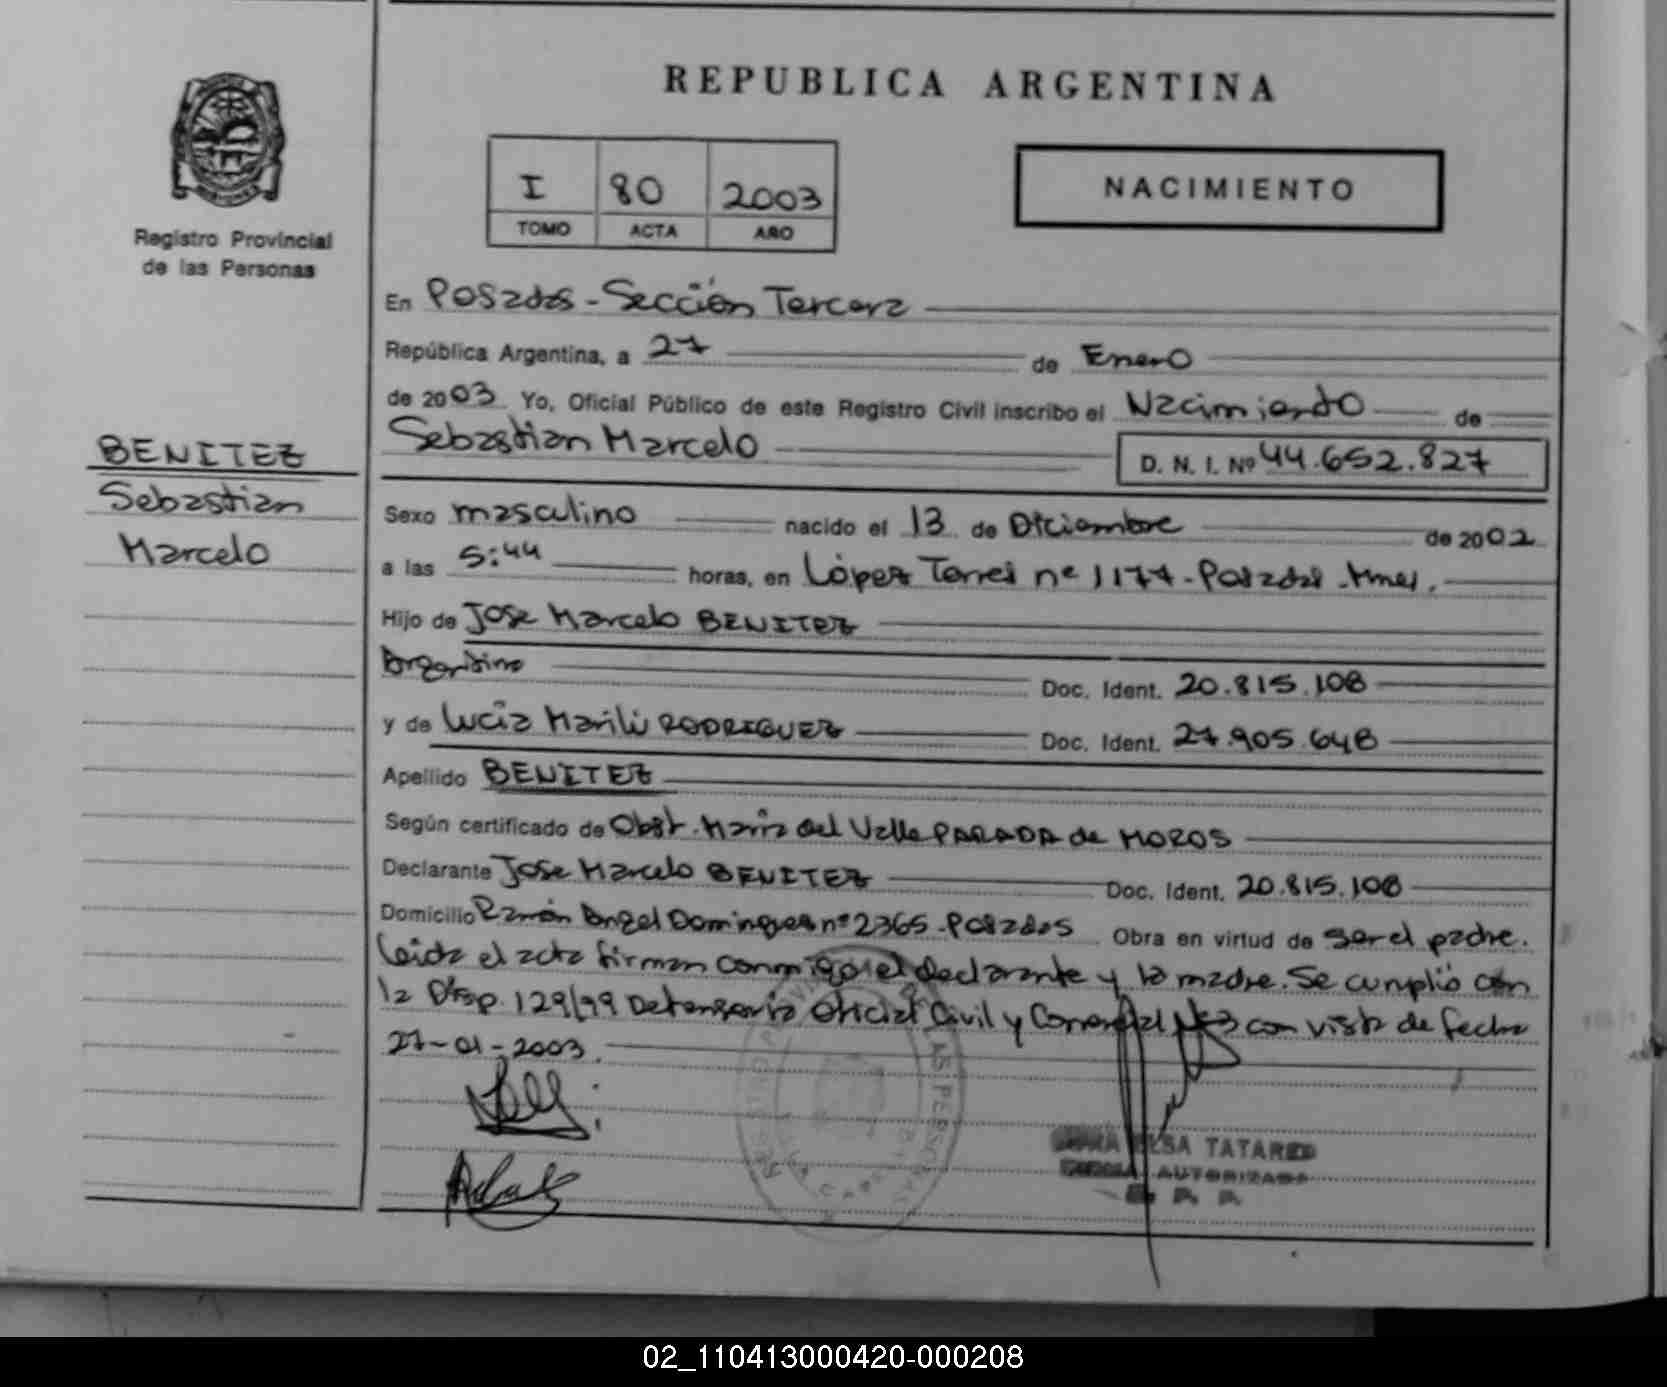 REPUBLICA ARGENTINA
I 80 2003
TOMO ACTA AÑO
NACIMIENTO
Registro Provincial
de las Personas
BENITEZ
Sebastian
Marcelo
En Posadas - Sección Tercera
República Argentina, a 27 de Enero
de 2003 Yo, Oficial Público de este Registro Civil inscribo el Nacimiento de
Sebastian Marcelo D. N. I. Nº 44.652.827
Sexo masculino nacido el 13 de Diciembre de 2002
a las 5:44 horas, en López Torres nº 1177 - Posadas - Mnes.
Hijo de Jose Marcelo BENITEZ
Argentino Doc. Ident. 20.815.108
y de Lucia Marili RODRIGUEZ Doc. Ident. 27.905.648
Apellido BENITEZ
Según certificado de Obst. Maria del Valle PARADA de MOROS
Declarante Jose Marcelo BENITEZ Doc. Ident. 20.815.108
Domicilio Ramón Angel Dominguez nº 2365 - Posadas Obra en virtud de ser el padre.
Leida el acta firman conmigo el declarante y la madre. Se cumplió con
la Disp. 129/99 Defensoria Oficial Civil y Comercial Nº3 con vista de fecha
27-01-2003.
ELSA TATAREN
AUTORIZADA
02_110413000420-000208